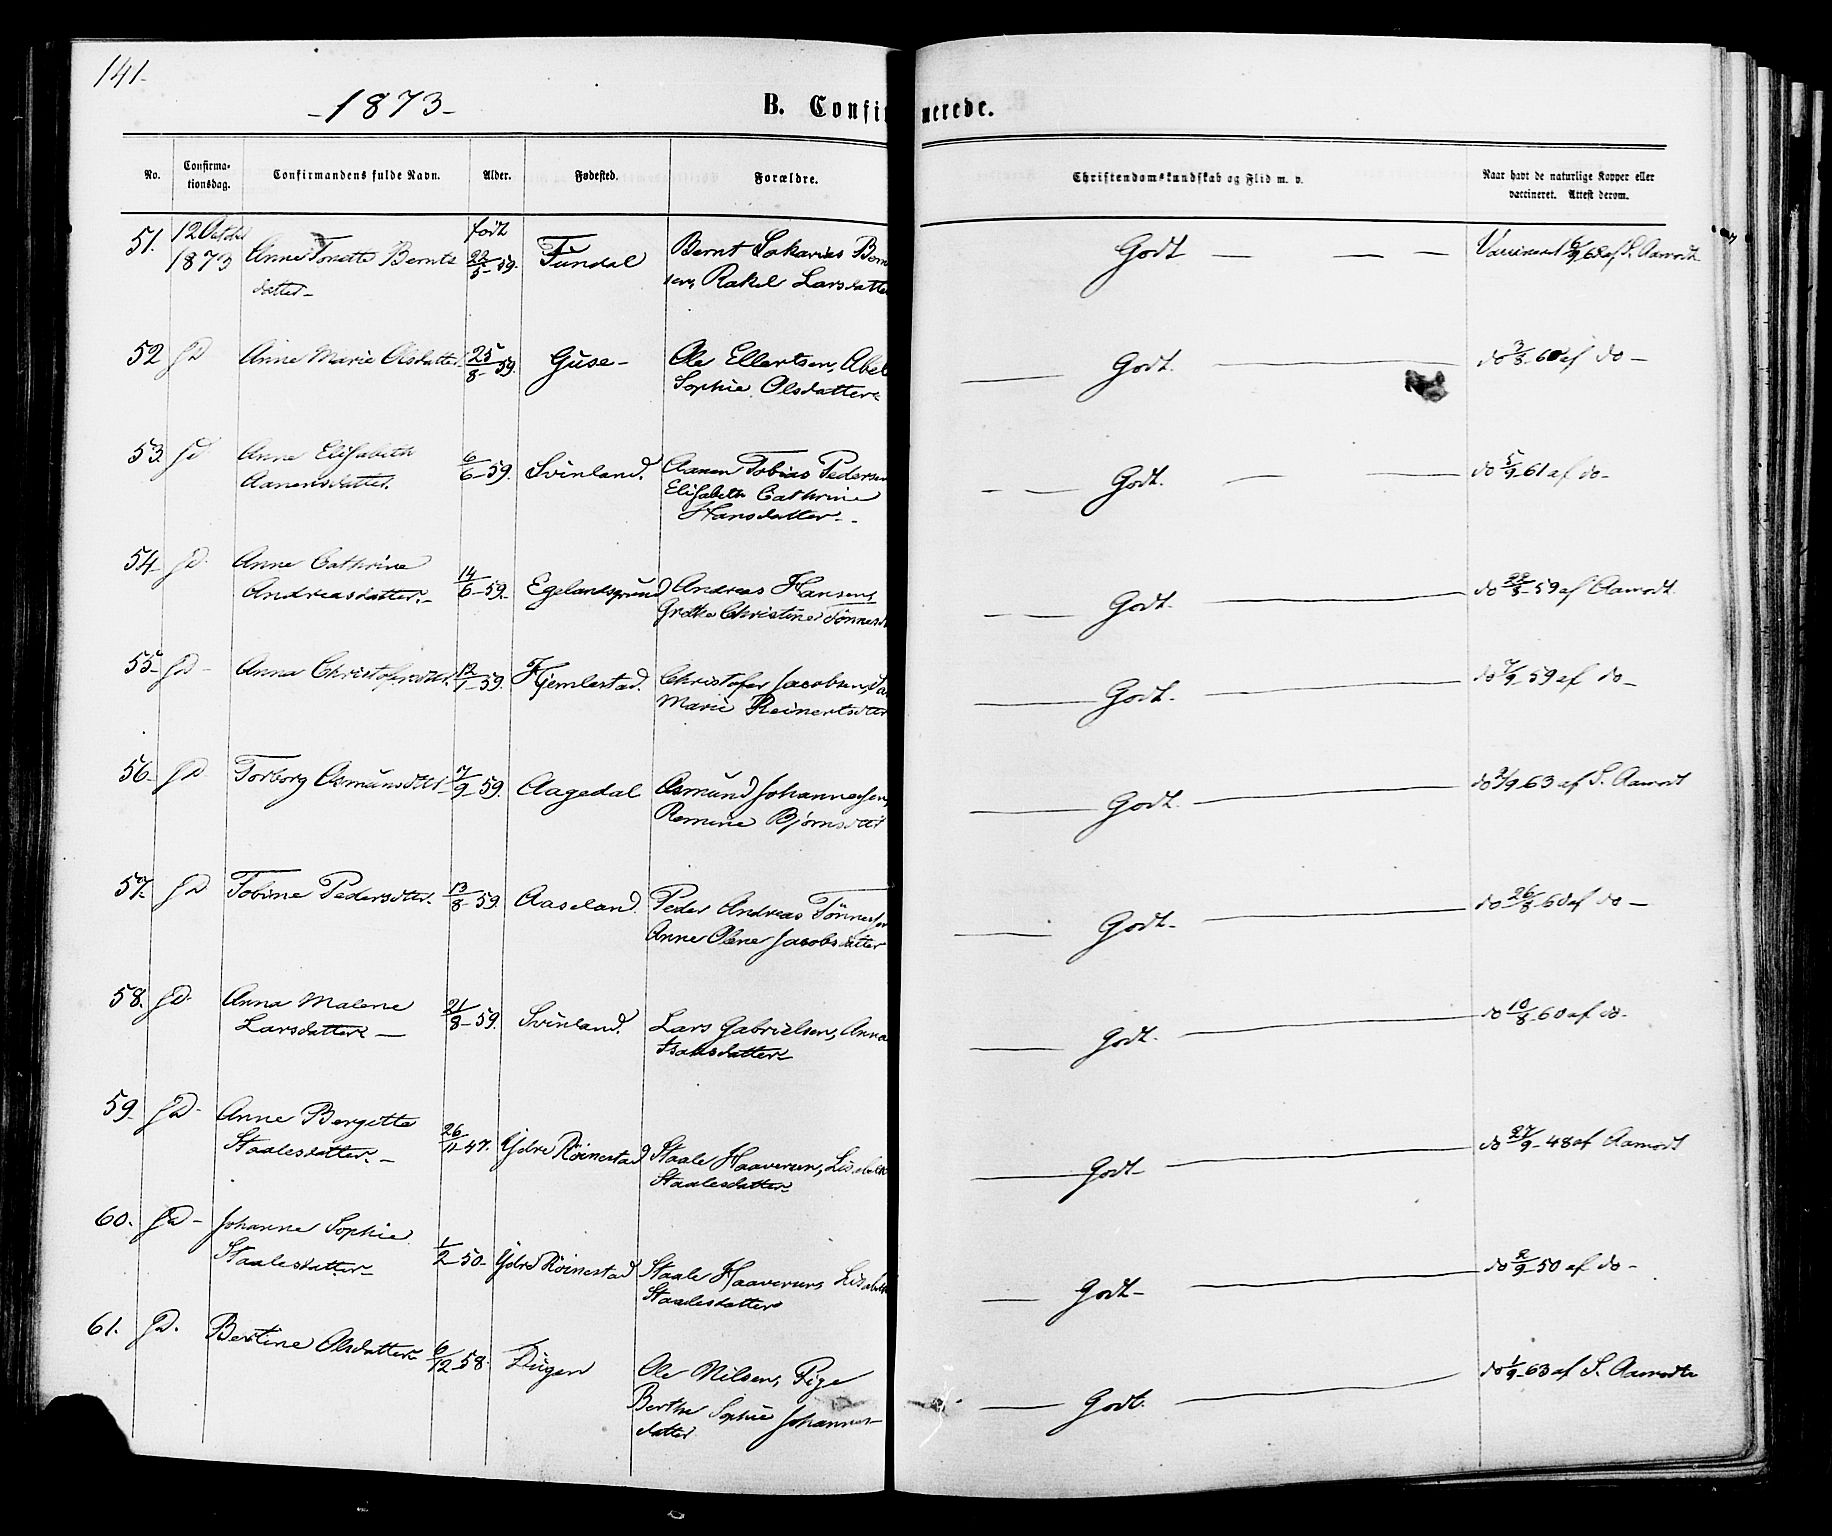 141-
-1873-
B. Confir
merede.
No.
Confirma-
tionsdag.
Confirmandens fulde Navn.
Alder.
Fødested.
Forældre.
Christendomskundskab og Flid m. v.
Naar havt de naturlige Kopper eller
vaccineret. Attest derom.
51. 12 October født Bernt Sakarias Bern
1873 Anne Tonette Bernts 22/5-59. Fundal Godt — — — Vaccineret 6/9 62 af S. Aamodt
datter- sen, Rakel Larsdatter
52 gd Anne Marie Olsdatter 25/8-59. Guse- Ole Ellertsen, Abel — Godt. — do 3/8-60 af do-
Sophie Olsdatter-
53. gd Anne Elisabeth 6/6-59. Svinland. Aanen Tobias Pedersen — Godt. — do 5/9-61 af do-
Aanensdatter. Elisabeth Cathrine
Hansdatter-
54 gd. Anne Cathrine 14/6-59. Egelandsgrund Andreas Hansen, — Godt. — do 22/8-59 af Aamodt
Andreasdatter.- Grethe Christine Tønnesd
55- gd- Anna Christofersdttr. 12/1-59. Hjemlestad. Christofer Jacobsen, — Godt. — do 7/9-59 af do-
Marie Reinertsdttr
56- gd Torborg Osmundsdttr 7/9-59. Aagedal Osmund Johannessen, — Godt. — do 3/9 63 af S. Aamodt
Remine Bjørnsdttr
57. gd Tobine Pedersdttr. 13/8-59. Aaseland. Peder Andreas Tønnessen — Godt- — do 26/8-60 af do-
Anne Olene Jacobsdatter
58. gd. Anna Malene 21/8-59. Svinland. Lars Gabrielsen, Anna — Godt. — do 10/8-60 af do-
Larsdatter- — Isaksdatter-
59- gd- Anne Bergitte 26/11-47. Ydre Røinestad Staale Haaversen, Lisabeth — Godt- — do 27/9-48 af Aamodt
Staalesdatter.- Staalesdatter-
60. gd- Johanne Sophie 1/2-50- Ydre Røinestad Staale Haaversen, Lisabeth — Godt- — do 2/9-50 af do-
Staalesdatter- Staalesdatter
61. gd. Bertine Olsdatter- 6/12-58. Ole Nilsen, Pige — Godt. — do 1/9-63 af S. Aamodt
Berthe Sophie Johannes-
datter